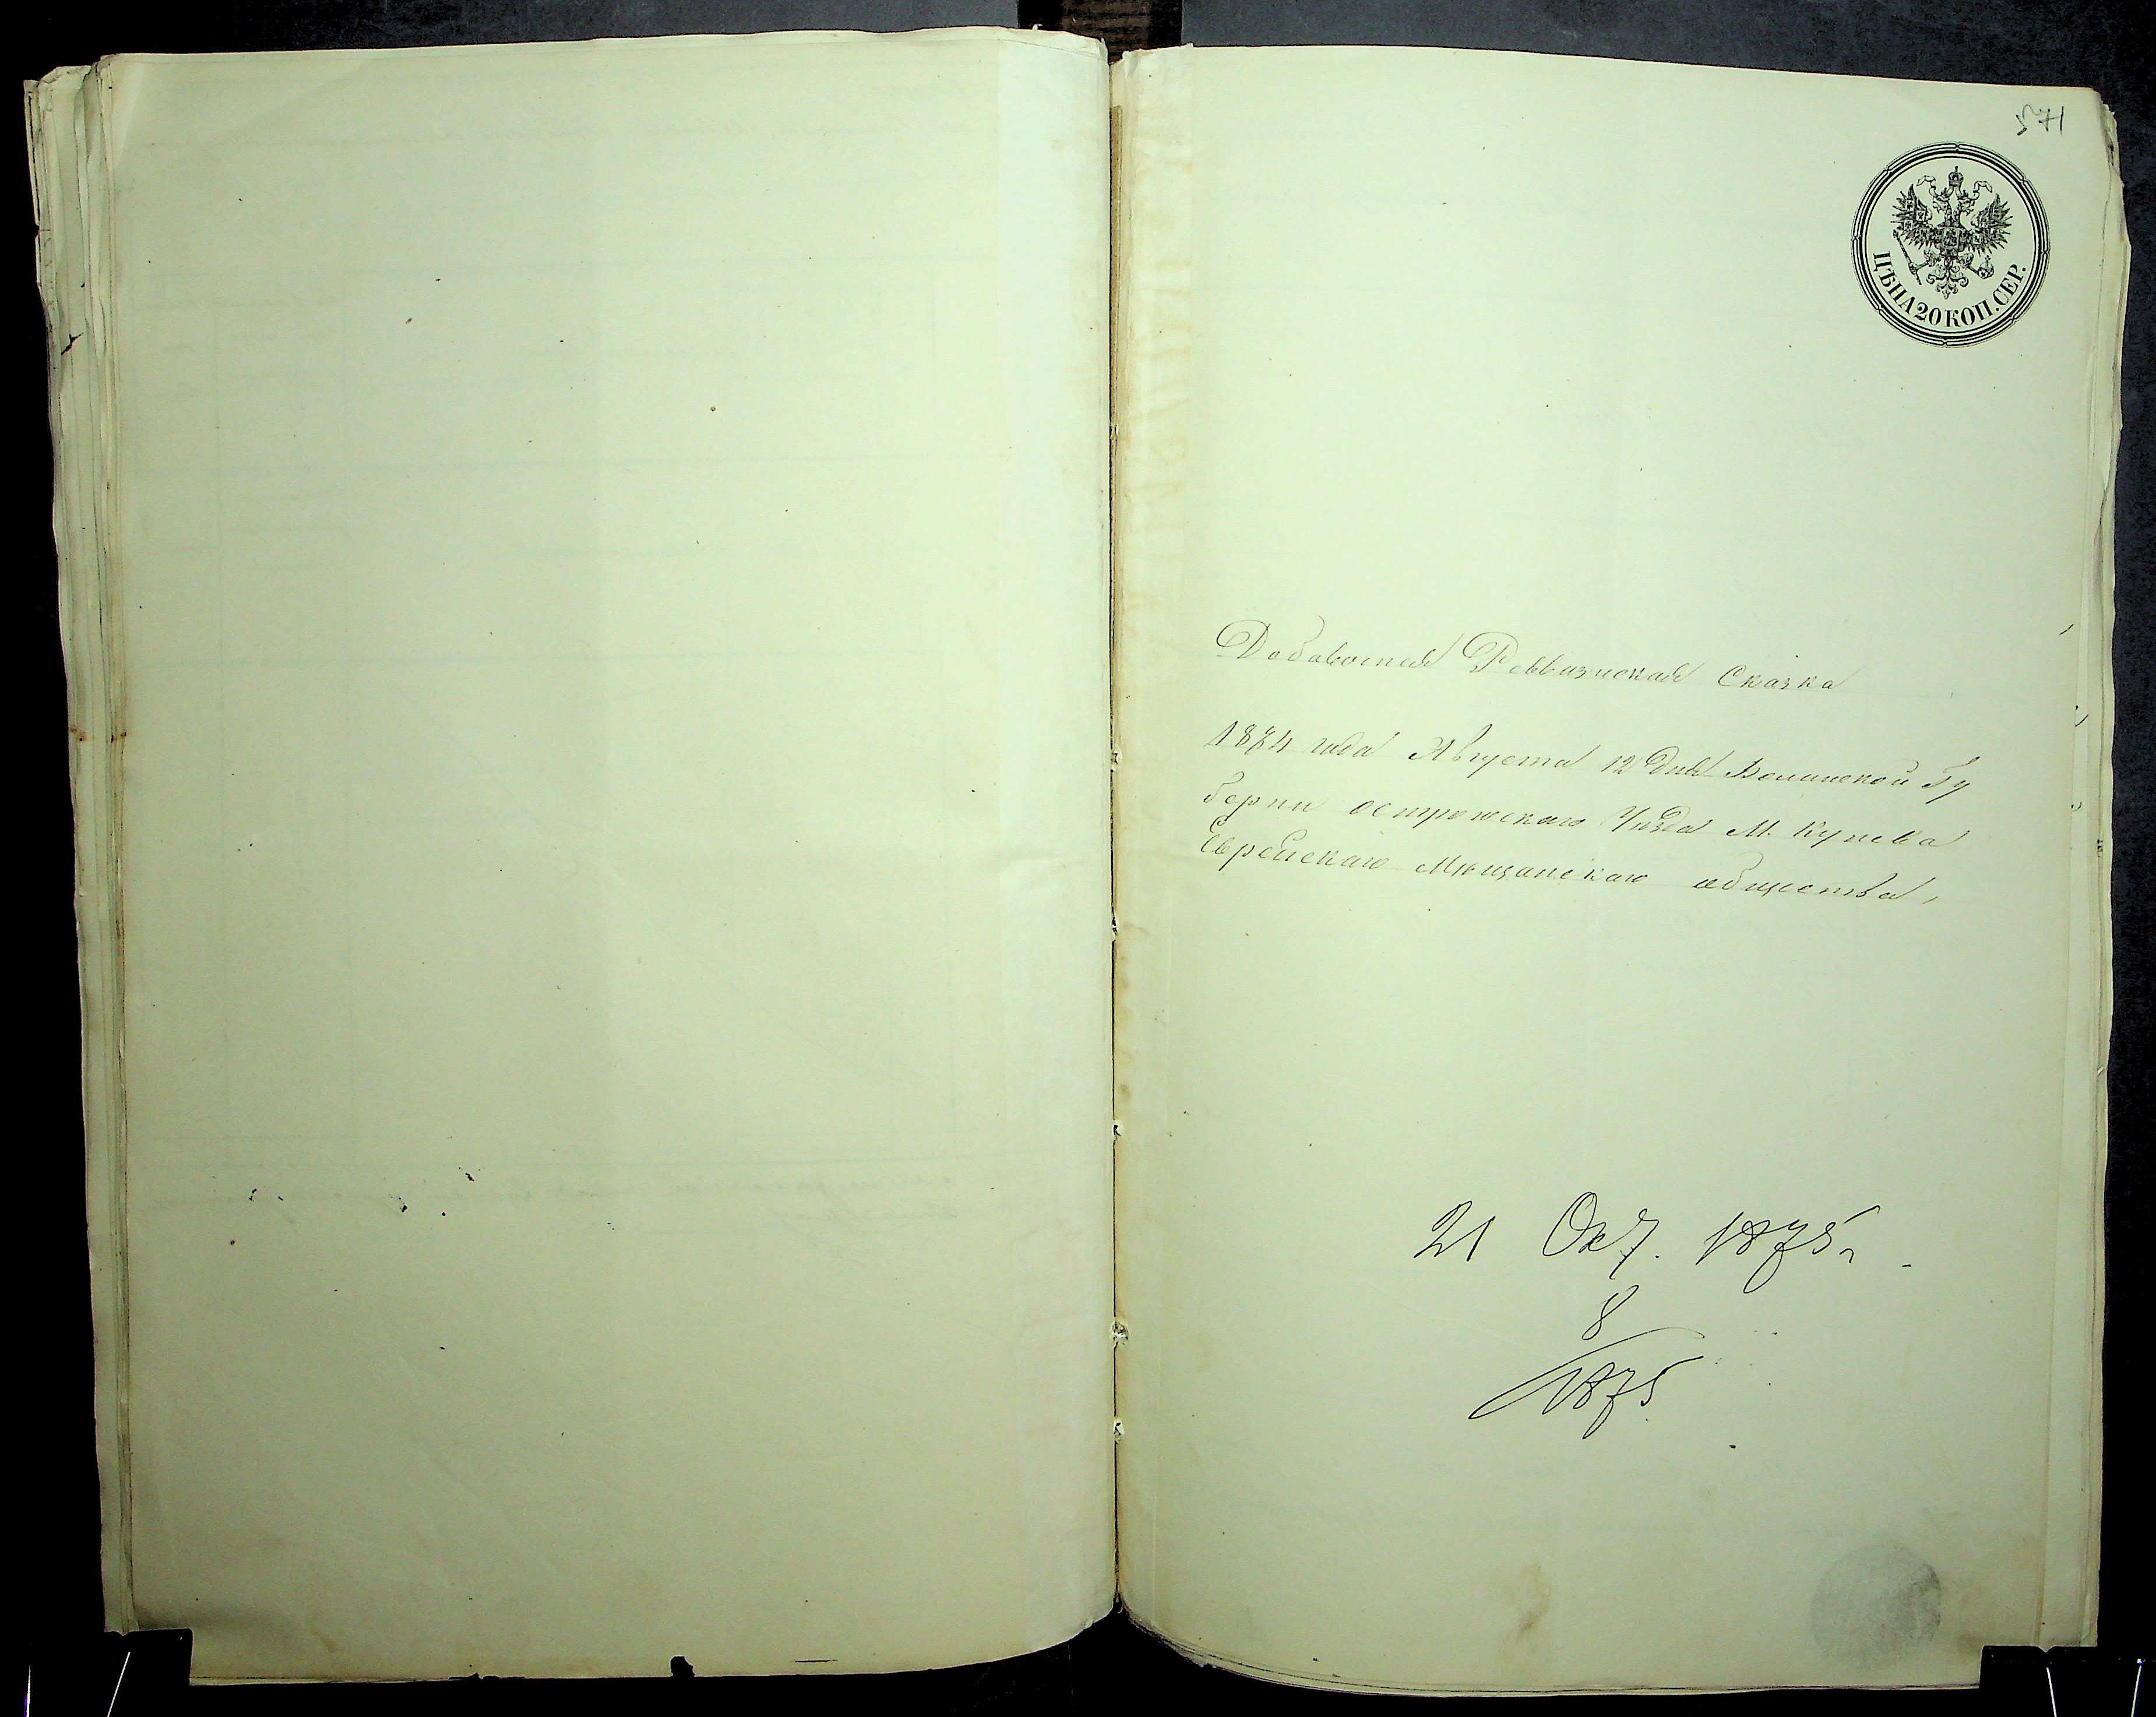 571
ЦѢНА 20 КОП. СЕР.
Добавочная Реввизиская Сказка
1874 года Августа 12 дня Волинской Гу
берни острожскаго Уизда М. Купева
Еврейскаго Мищанскаго общества,
21 Окт. 1875 г.
8
1875